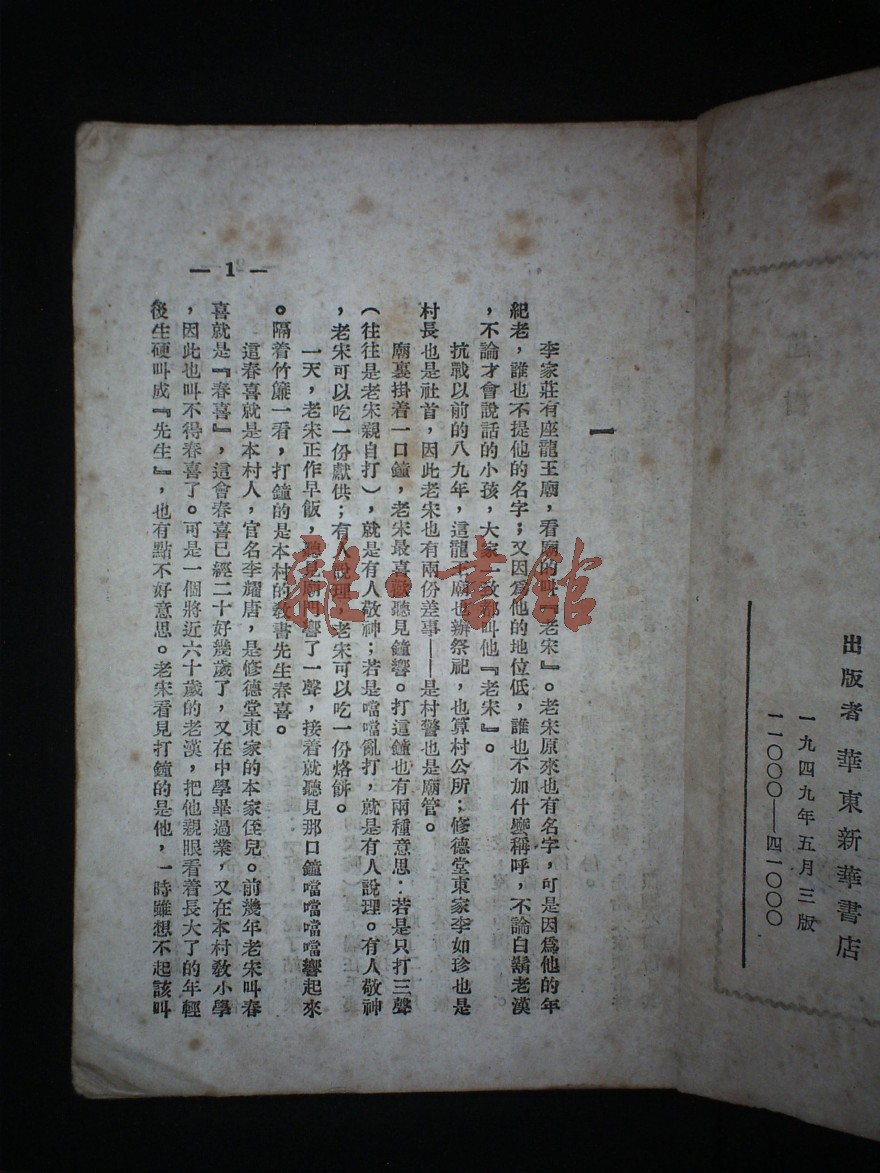 出版者 華東新華書店
一九四九年五月三版
一一〇〇〇—四一〇〇〇
一
李家莊有座龍王廟，看廟的叫『老宋』。老宋原來也有名字，可是因爲他的年
紀老，誰也不提他的名字；又因爲他的地位低，誰也不加什麼稱呼，不論白鬍老漢
，不論才會說話的小孩，大家一致都叫他『老宋』。
抗戰以前的八九年，這龍王廟也辦祭祀，也算村公所；修德堂東家李如珍也是
村長也是社首，因此老宋也有兩份差事——是村警也是廟管。
廟裏掛着一口鐘，老宋最喜歡聽見鐘響。打這鐘也有兩種意思：若是只打三聲
（往往是老宋親自打），就是有人敬神；若是噹噹亂打，就是有人說理。有人敬神
，老宋可以吃一份獻供；有人說理，老宋可以吃一份烙餅。
一天，老宋正作早飯，聽見廟門響了一聲，接着就聽見那口鐘噹噹噹噹響起來
。隔着竹簾一看，打鐘的是本村的敎書先生春喜。
這春喜就是本村人，官名李耀唐，是修德堂東家的本家侄兒。前幾年老宋叫春
喜就是『春喜』，這會春喜已經二十好幾歲了，又在中學畢過業，又在本村敎小學
，因此也叫不得春喜了。可是一個將近六十歲的老漢，把他親眼看着長大了的年輕
後生硬叫成『先生』，也有點不好意思。老宋看見打鐘的是他，一時雖想不起該叫
— 1 —
雜·書館